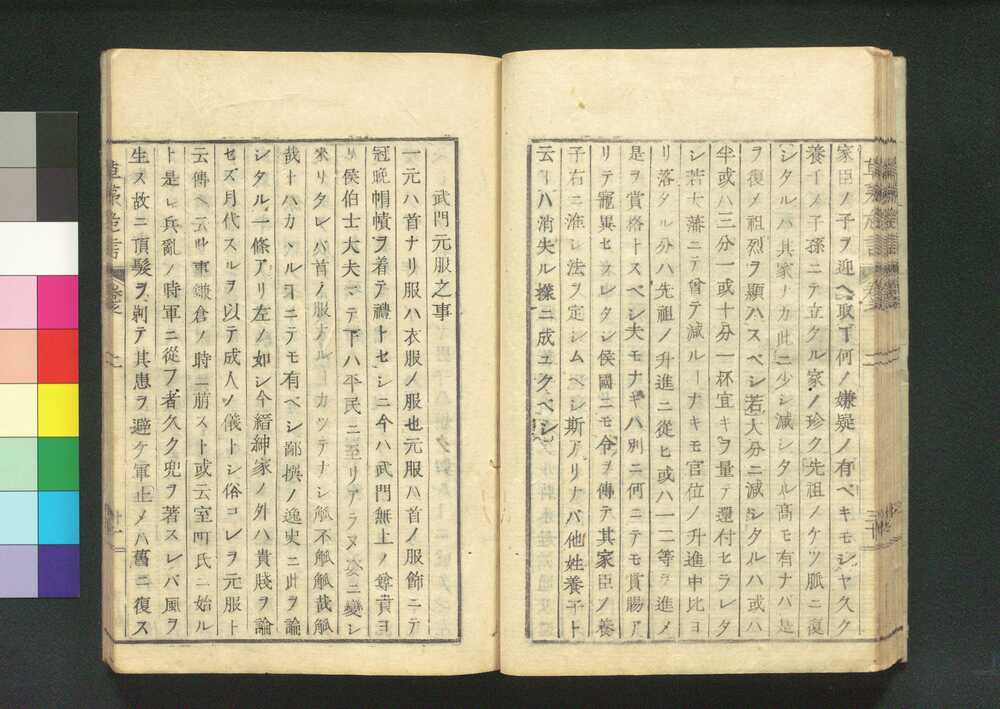 家臣ノ子ヲ迎ヘ取テ何ノ嫌疑ノ有ベキモシヤ久ク
養子ノ子孫ニテ立クル家ノ珍ク先祖ノケツ脈ニ復
シタルハ其家ノカ此ニ少シ減シタル高モ有ナバ是
ヲ復メ祖烈ヲ顯ハスベシ若大分ニ減シタルハ或ハ
半或ハ三分一或十分一杯宜キヲ量テ還付セラレタ
シ若大藩ニテ曾テ減ルヿナキモ官位ノ升進中比ヨ
リ落タル分ハ先祖ノ升進ニ從ヒ或ハ一二等ヲ進メ
是ヲ賞格トスベシ夫モナキハ別ニ何ニテモ賞賜ア
リテ寵異セラレタシ侯國ニモ令ヲ傳テ其家臣ノ養
子右ニ准シ法ヲ定シムベシ斯アリナバ他姓養子ト
云ヿハ消失ル樣ニ成ユクベシ
武門元服之事
一元ハ首ナリ服ハ衣服ノ服也元服ハ首ノ服飾ニテ
冠冕帽幘ヲ着テ禮トセシニ今ハ武門無上ノ尊貴ヨ
リ侯伯士大夫ニテ下ハ平民ニ至リアラヌ姿ニ變シ
來リタレバ首ノ服ナルヿカツテナシ觚不觚觚哉觚
哉トハカヽルヿニテモ有ベシ鄙撰ノ逸史ニ此ヲ論
シタル一條アリ左ノ如シ今縉紳家ノ外ハ貴賤ヲ論
セズ月代スルヲ以テ成人ノ儀トシ俗コレヲ元服ト
云傳ヘ云此事鎌倉ノ時ニ萠スト或云室町氏ニ始ル
ト是レ兵亂ノ時軍ニ從フ者久ク兜ヲ著スレバ風ヲ
生ス故ニ頂髮ヲ剃テ其患ヲ避ケ軍止メハ舊ニ復ス